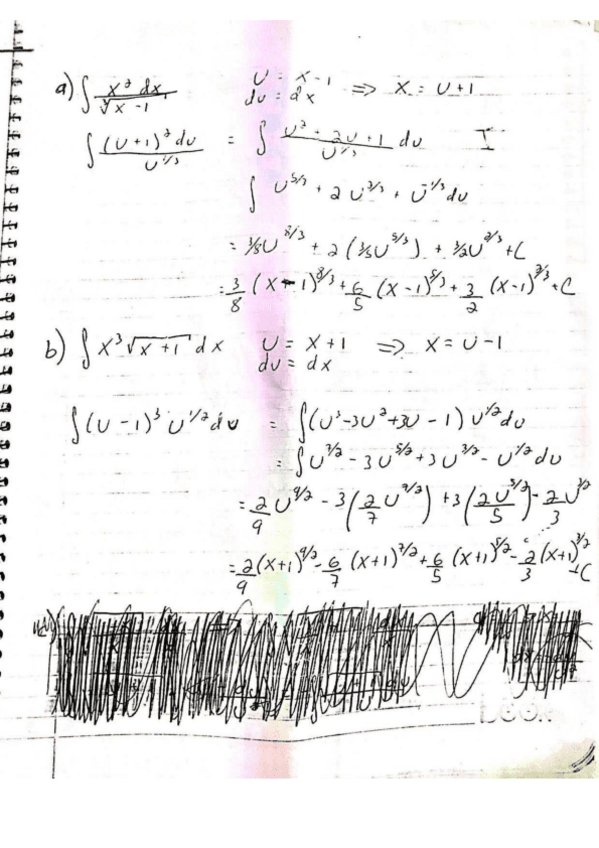 a) ∫ x² dx / ∛(x - 1)    u = x - 1 ⇒ x = u + 1
du = dx
∫ (u+1)² du / u^(1/3) = ∫ (u² + 2u + 1) / u^(1/3) du
∫ u^(5/3) + 2u^(2/3) + u^(-1/3) du
= 3/8 u^(8/3) + 2(3/5 u^(5/3)) + 3/2 u^(2/3) + C
= 3/8 (x - 1)^(8/3) + 6/5 (x - 1)^(5/3) + 3/2 (x - 1)^(2/3) + C
b) ∫ x³ √(x + 1) dx    u = x + 1 ⇒ x = u - 1
du = dx
∫ (u - 1)³ u^(1/2) du = ∫ (u³ - 3u² + 3u - 1) u^(1/2) du
= ∫ u^(7/2) - 3u^(5/2) + 3u^(3/2) - u^(1/2) du
= 2/9 u^(9/2) - 3(2/7 u^(7/2)) + 3(2u^(5/2)/5) - 2/3 u^(3/2)
= 2/9 (x+1)^(9/2) - 6/7 (x+1)^(7/2) + 6/5 (x+1)^(5/2) - 2/3 (x+1)^(3/2) + C